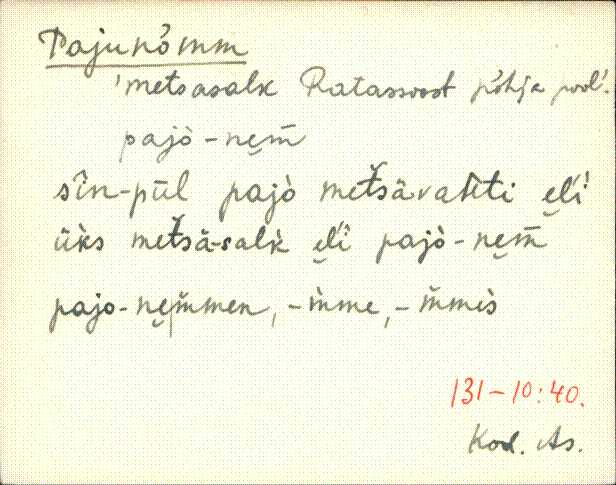 Pajunõmm
'metsasalk Ratassvoost põhja pool'.
pajò-nẹm̄
sīn-pūl pajò metsävaɦti ẹĺi
üks metsä-salk ẹĺi pajò-nẹm̄
pajo-nẹm̆men, -m̀me, -m̆mis
131-10:40.
Kod. As.